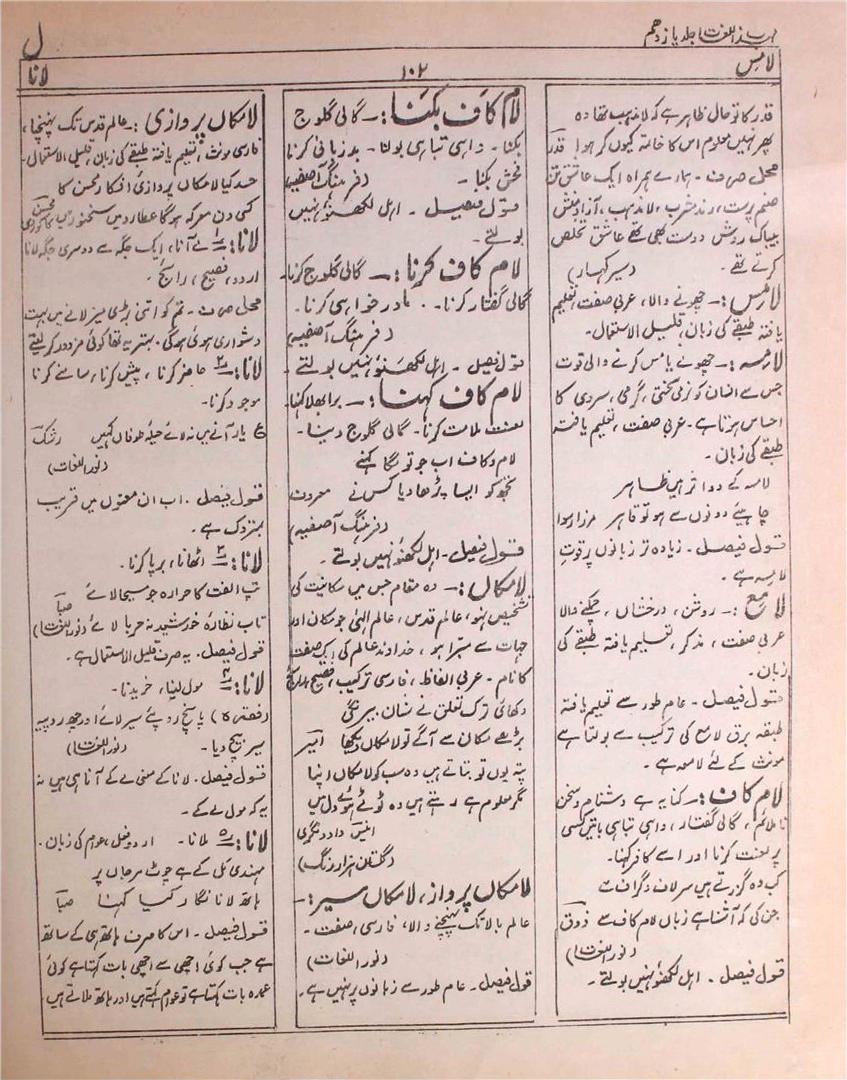 مہذب اللغت (جلد یازدھم)
ل
لامِس
۱۰۲
لانا
قدر کا تو حال ظاہر ہے کہ لا مذہب تھا وہ
پھر نہیں معلوم اس کا خاتمہ کیوں کر ہوا قدر
محل صرف۔ ہمارے ہمراہ ایک عاشق تن
صنم پرست، رند مشرب، لامذہب، آزاد منش
بیباک روش دوست بھی تھے عاشق تخلص
کرتے تھے۔ (سیر کہسار)
لامِس:۔ چھونے والا، عربی صفت، تعلیم
یافتہ طبقے کی زبان، قلیل الاستعمال۔
لامسہ:۔ چھونے یا مس کرنے والی قوت
جس سے انسان کو نرمی سختی، گرمی، سردی کا
احساس ہوتا ہے۔ عربی صفت، تعلیم یافتہ
طبقے کی زبان۔
لامسہ کے دو اثر ہیں ظاہر
چاہیے دونوں سے ہو تو ماہر مرزا رسوا
قول فیصل۔ زیادہ تر زبانوں پر قوتِ
لامسہ ہے۔
لامع:۔ روشن، درخشاں، چمکنے والا
عربی صفت، مذکر، تعلیم یافتہ طبقے کی
زبان۔
قول فیصل۔ عام طور سے تعلیم یافتہ
طبقہ برق لامع کی ترکیب سے بولتا ہے
مونث کے لئے لامعہ ہے۔
لام کاف:۔ کنایہ ہے دشنام و سخن
نا ملائم، گالی گفتار، واہی تباہی باتیں کسی
پر لعنت کرنا اور اسے کافر کہنا۔
کب وہ گزرتے ہیں سر لاف و گزاف سے
جن کی کہ آشنا ہے زباں لام کاف سے ذوق
(نور اللغت)
قول فیصل۔ اہل لکھنؤ نہیں بولتے۔
لام کاف بکنا:۔ گالی گلوج
بکنا۔ واہی تباہی بولنا۔ بدزبانی کرنا
فحش بکنا۔ (فرہنگ آصفیہ)
قول فیصل۔ اہل لکھنؤ نہیں
بولتے۔
لام کاف کرنا:۔ گالی گلوج کرنا۔
گالی گفتار کرنا۔ مادر خواہی کرنا۔
(فرہنگ آصفیہ)
قول فیصل۔ اہل لکھنؤ نہیں بولتے۔
لام کاف کہنا:۔ برا بھلا کہنا
لعنت ملامت کرنا۔ گالی گلوج دینا۔
لام و کاف اب جو تو لگا کہنے
تجھ کو ایسا پڑھا دیا کس نے معروف
(فرہنگ آصفیہ)
قول فیصل۔ اہل لکھنؤ نہیں بولتے۔
لامکاں:۔ وہ مقام جس میں مکانیت کی
تشخیص نہو، عالم قدس، عالم الٰہی جو مکان اور
جہات سے مبرّا ہو، خداوند عالم کی ایک صفت
کا نام۔ عربی الفاظ، فارسی ترکیب، فصیح، رائج
دکھائی ترک تعلق نے شان بیرنگی
بڑھے مکان سے آگے تو لامکاں دیکھا امیر
پتہ یوں تو بتاتے ہیں وہ سب کو لامکاں اپنا
مگر معلوم ہے رہتے ہیں وہ ٹوٹے ہوئے دل میں
(گلستان ہزار رنگ)
لامکاں پرواز، لامکاں سیر:۔
عالم بالا تک پہنچنے والا، فارسی، صفت۔
(نور اللغات)
قول فیصل۔ عام طور سے زبانوں پر نہیں ہے۔
لامکاں پروازی:۔ عالم قدس تک پہنچنا،
فارسی مونث، تعلیم یافتہ طبقے کی زبان، قلیل الاستعمال۔
حسد کیا لامکاں پروازیٔ افکار محسن کا
کسی دن معرکہ ہوگا عطارد میں سخنور میں محسن کاکوروی
لانا:۔ ۱؎ لے آنا، ایک جگہ سے دوسری جگہ لانا
اردو، فصیح، رائج۔
محل صرف۔ تم کو اتنی بڑی میز لانے میں بہت
دشواری ہوئی ہوگی۔ بہتر یہ تھا کوئی مزدور کر لیتے
لانا:۔ ۲؎ حاضر کرنا، پیش کرنا، سامنے کرنا
موجود کرنا۔
ع یار آنے میں نہ لائے حیلہ طوفاں کہیں رشک
(نور اللغات)
قول فیصل۔ اب ان معنوں میں قریب
بمتروک ہے۔
لانا:۔ ۳؎ اٹھانا، برپا کرنا۔
تپ الفت کا حرارہ جو مسیحا لائے
تاب نظارۂ خورشید نہ حربا لائے صبا (نور اللغت)
قول فیصل۔ یہ صرف قلیل الاستعمال ہے۔
لانا:۔ ۴؎ مول لینا، خریدنا۔
(فقرہ) پانچ روپئے سیر لائے اور چھ روپیہ
سیر بیچ دیا۔ (نور اللغت)
قول فیصل۔ لانا کے معنی لے کے آنا ہی ہیں نہ
یہ کہ مول لے کے۔
لانا:۔ ۵؎ ملانا۔ اردو فعل، عوام کی زبان۔
مہندی مَل کے ہے چوٹ مرجاں پر
ہاتھ لانا نگار کیا کہنا صبا
قول فیصل۔ اس کا صرف ہاتھ ہی کے ساتھ
ہے جب کوئی اچھی سے اچھی بات کہتا ہے کوئی
عمدہ بات کہتا ہے تو عوام کہتے ہیں اور ہاتھ ملاتے ہیں